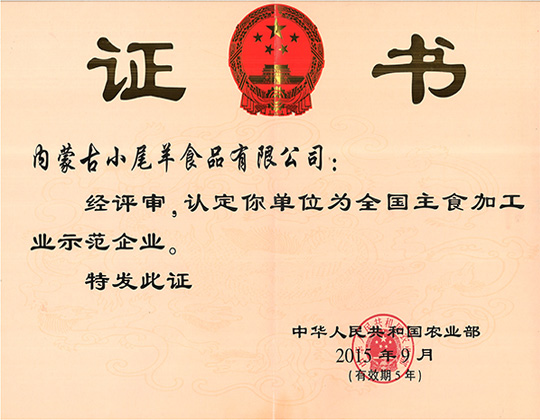 证书
内蒙古小尾羊食品有限公司：
经评审，认定你单位为全国主食加工
业示范企业。
特发此证
中华人民共和国农业部
2015 年 9 月
(有效期 5 年)